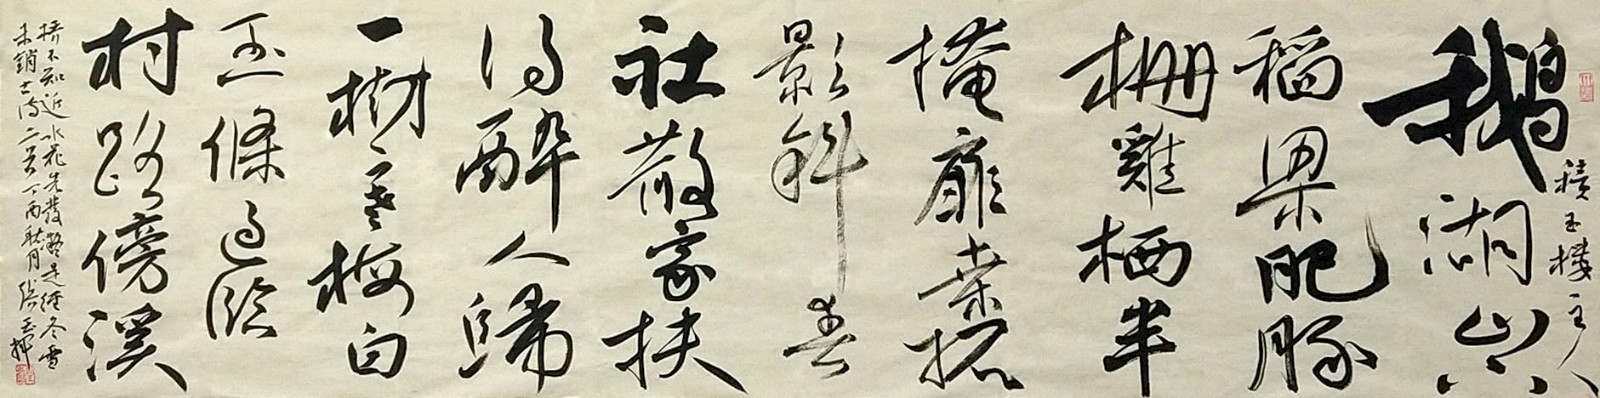 積玉樓主人
鵝湖山下
稻粱肥豚
栅雞栖半
掩扉桑柘
影斜春
社散家扶
得醉人歸
一樹寒梅白
玉條迥臨
村路傍溪
橋不知近水花先發疑是經冬雪
未銷古诗二首丁酉秋月張玉